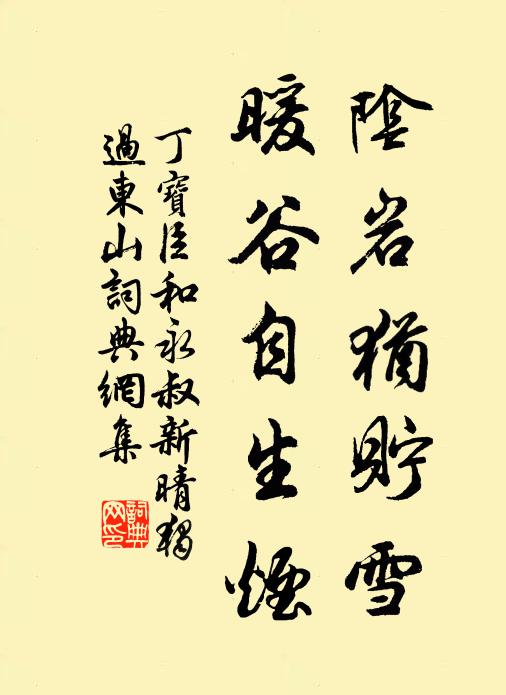 陰岩猶貯雪
暖谷自生煙
丁寶臣和永叔新晴獨
過東山詞典網集
詞典
网印